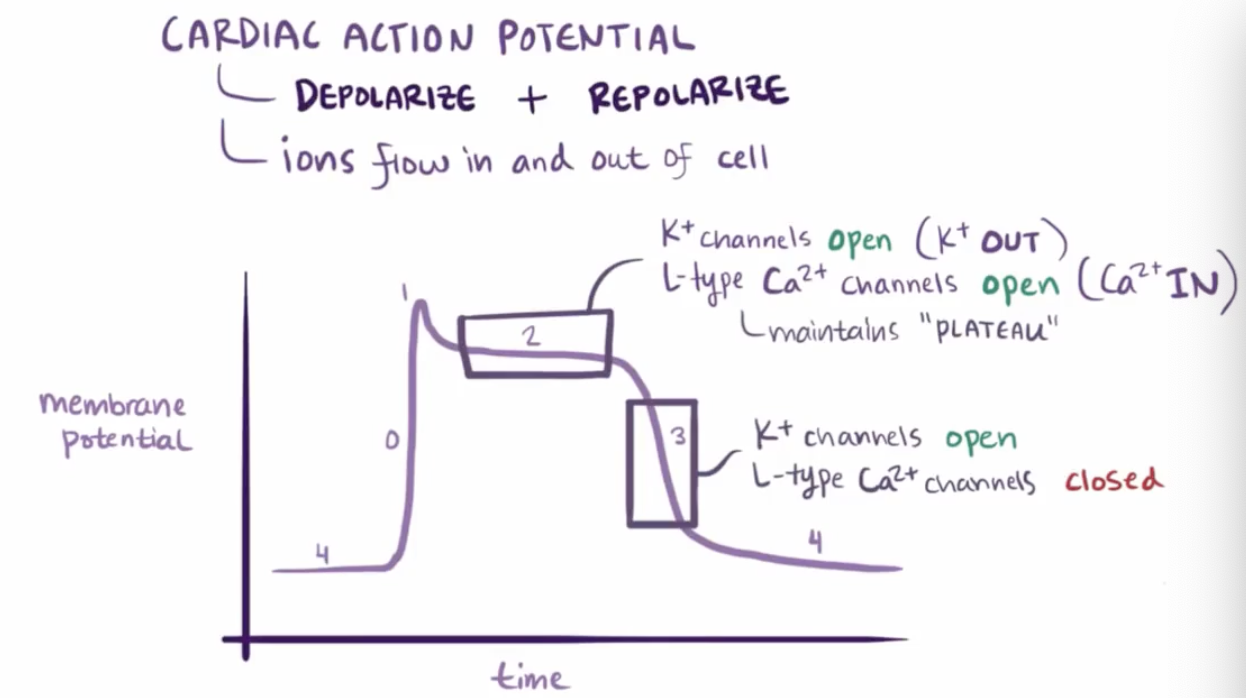 CARDIAC ACTION POTENTIAL
DEPOLARIZE + REPOLARIZE
ions flow in and out of cell
K+ channels open (K+ OUT)
L-type Ca2+ channels open (Ca2+ IN)
maintains "PLATEAU"
1
2
membrane
potential
0
3
K+ channels open
L-type Ca2+ channels closed
4
4
time